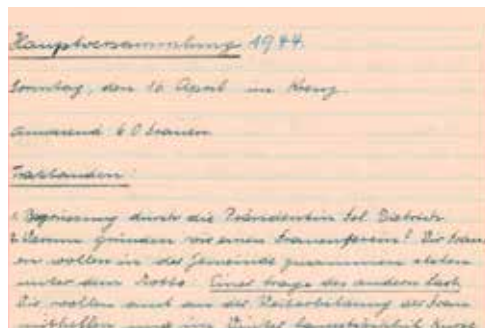 Hauptversammlung 1944.
Sonntag, den 16. April im Kreuz.
Anwesend 60 Frauen
Traktanden:
1. Begrüssung durch die Präsidentin Frl. Dietrich
2. Warum gründen wir einen Frauenverein? Wir Frau-
en wollen in der Gemeinde zusammen stehen
unter dem Motto: Einer trage des andern Last.
Wir wollen auch an der Weiterbildung der Frau
mithelfen und im Winter hauptsächlich Kurse